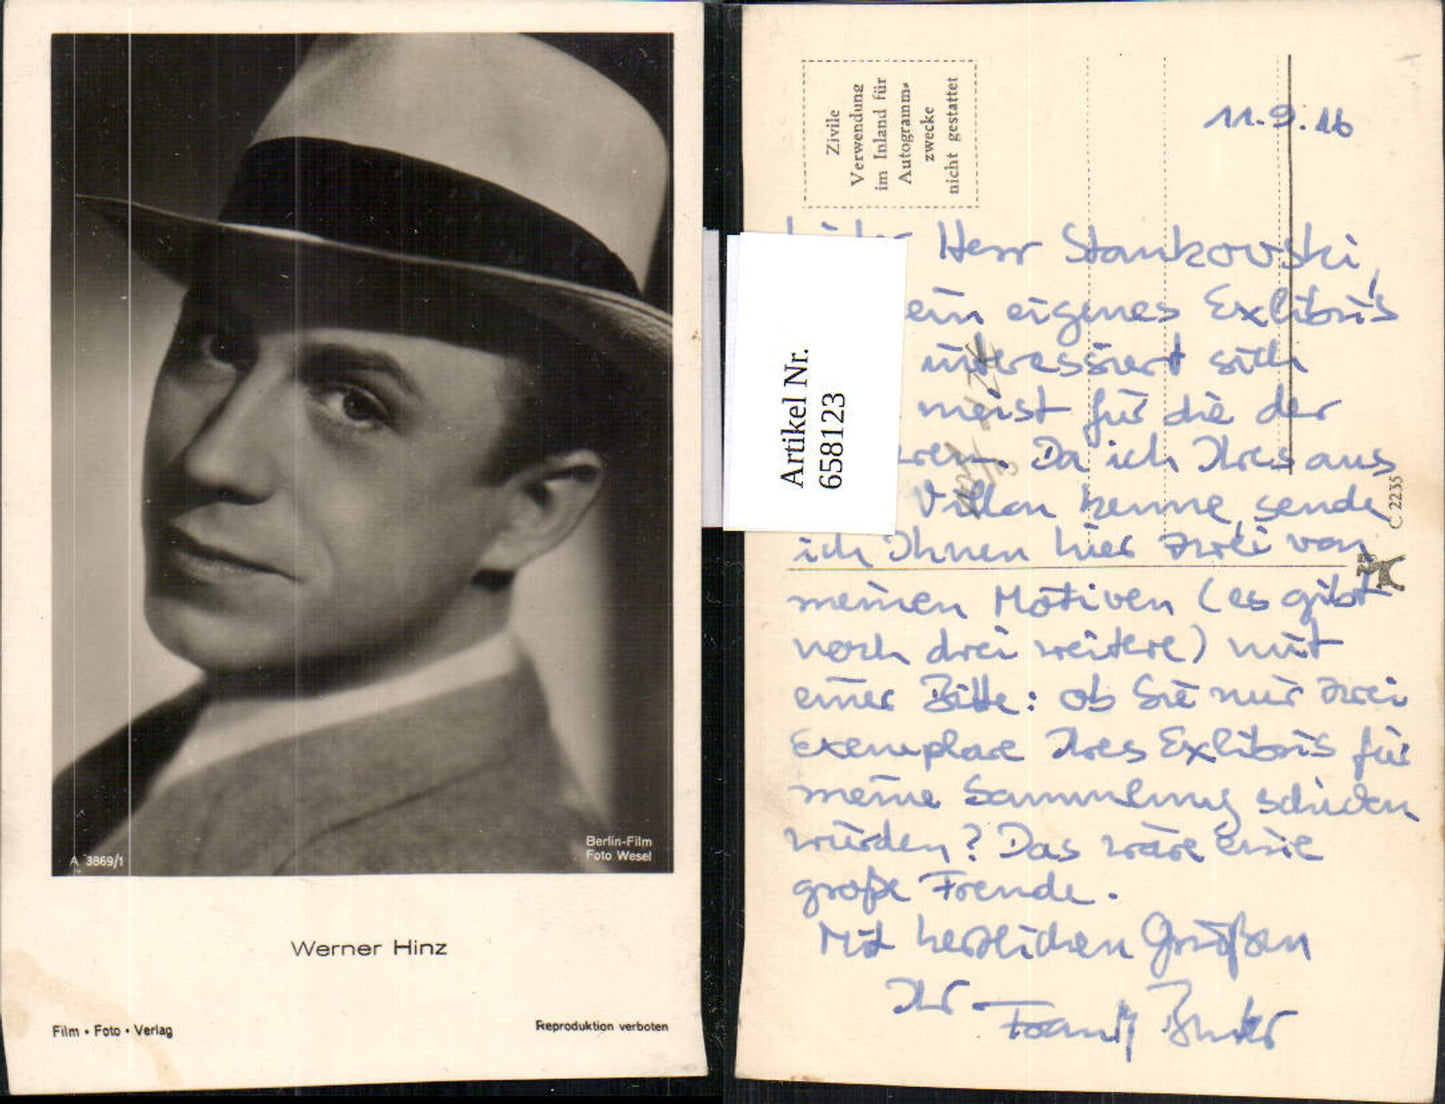 A 3869/1
Berlin-Film
Foto Wesel
Werner Hinz
Film • Foto • Verlag
Reproduktion verboten
Zivile
Verwendung
im Inland für
Autogramm-
zwecke
nicht gestattet
Artikel Nr.
658123
C 2235
11.9.16
Herr Stankowski,
ein eigenes Exlibris
interessiert sich
meist für die der
eren. Da ich Ihres aus
Villon kenne, sende
ich Ihnen hier zwei von
meinen Motiven (es gibt
noch drei weitere) mit
einer Bitte: ob Sie mir zwei
Exemplare Ihres Exlibris für
meine Sammlung schicken
würden? Das wäre eine
große Freude.
Mit herzlichen Grüßen
Ihr